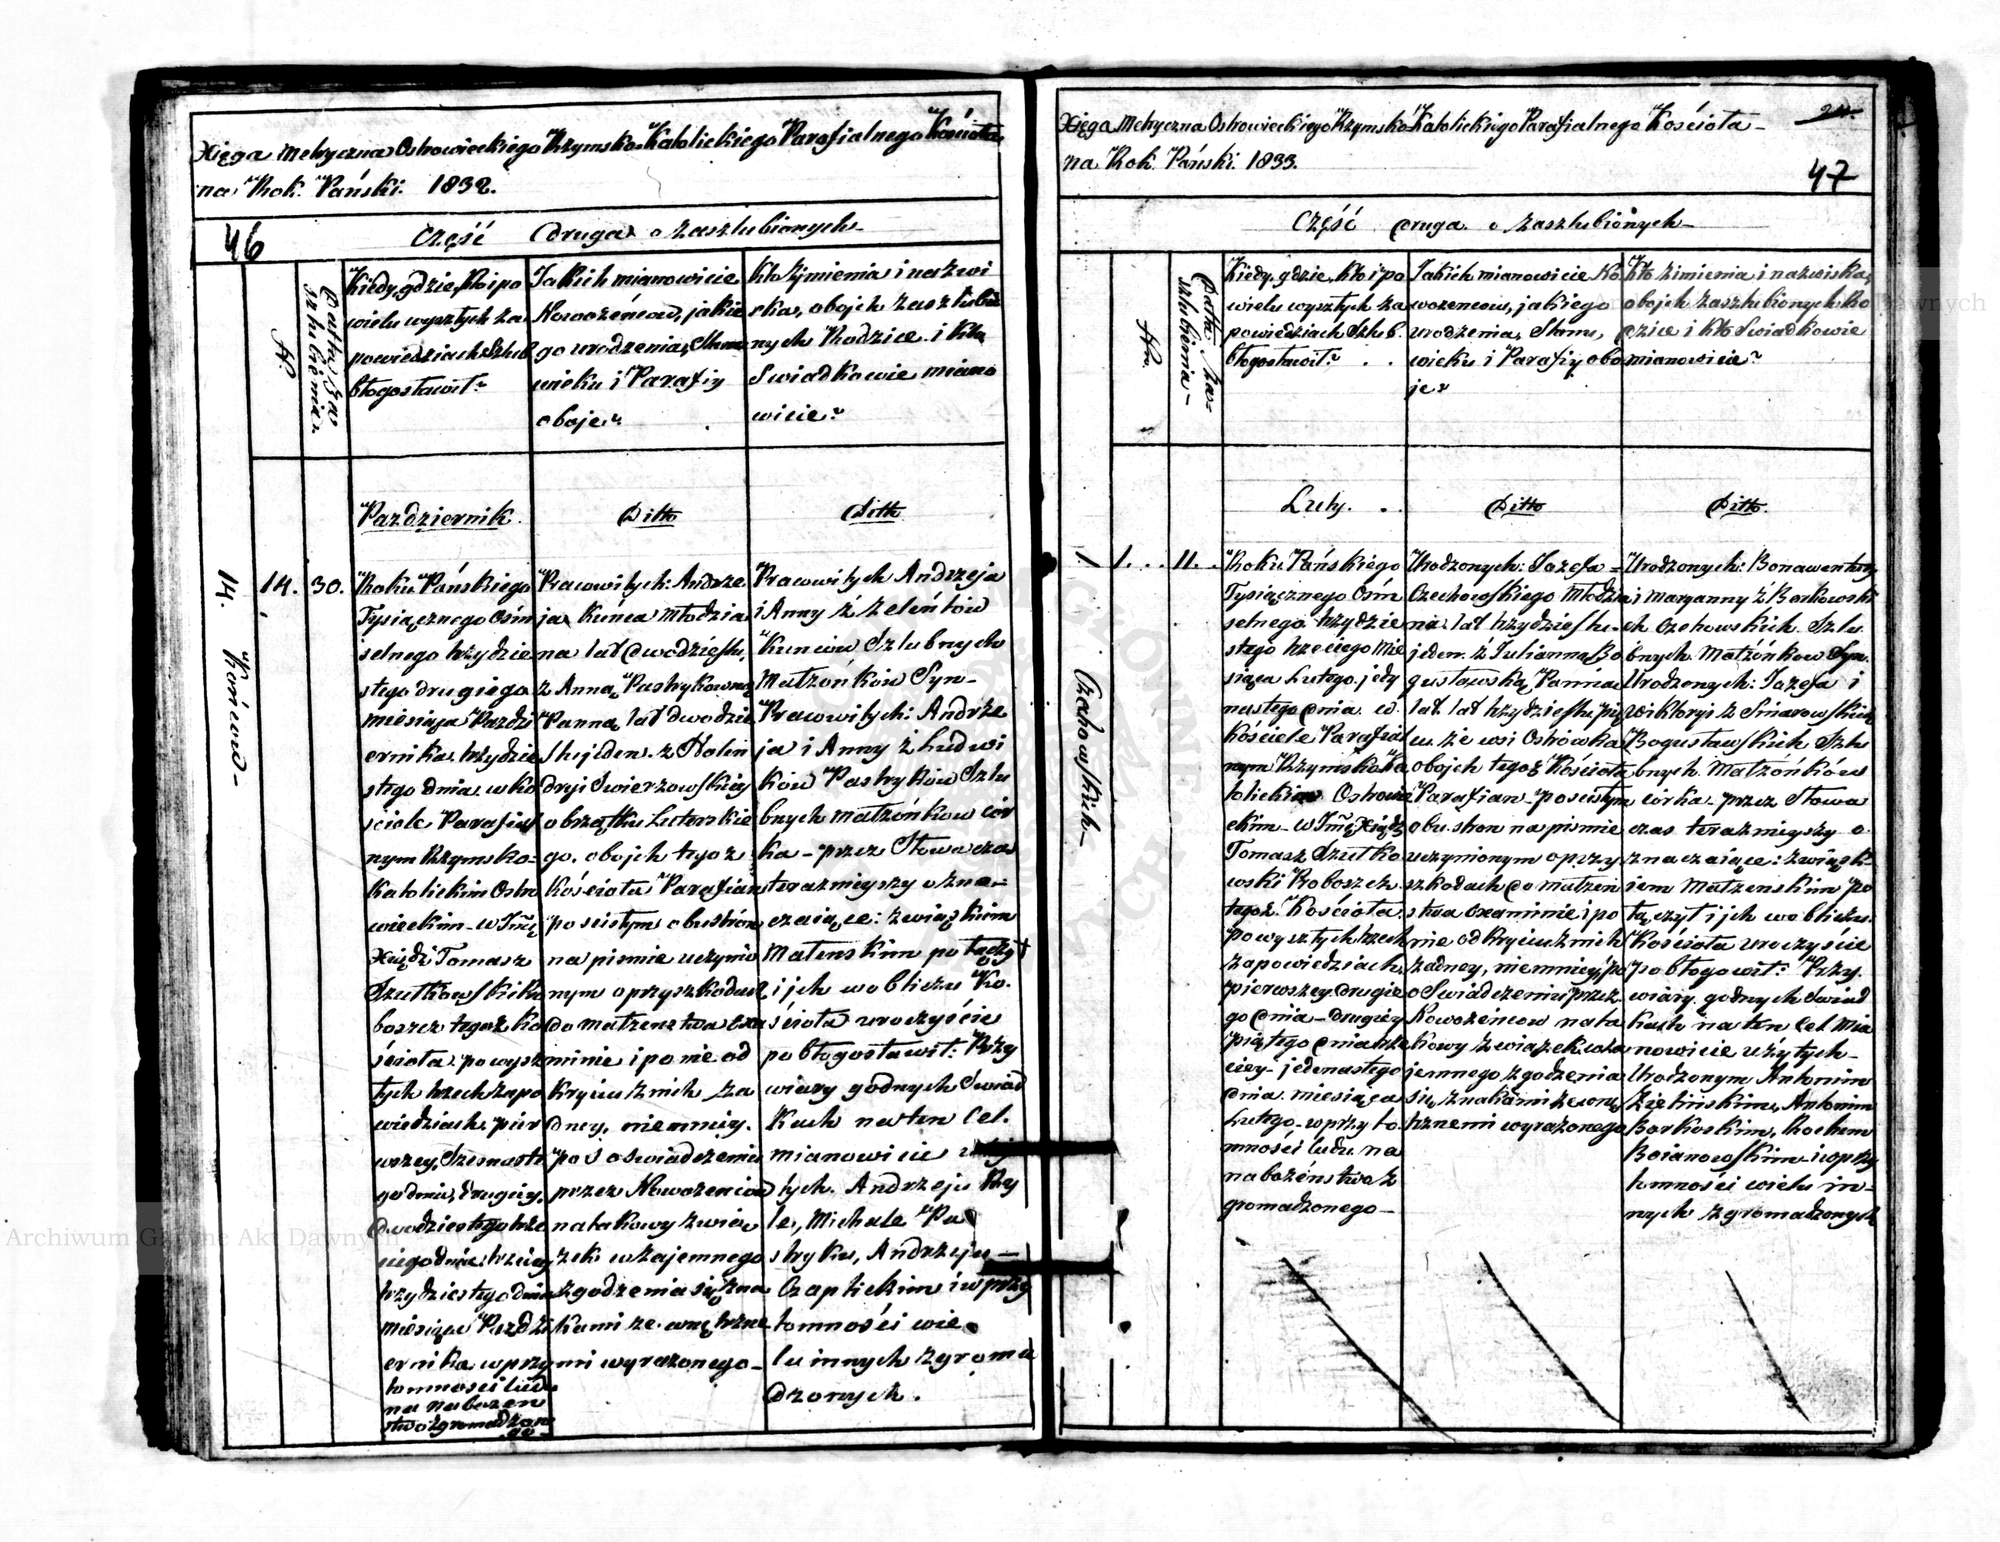 Xięga Metryczna Ostrowieckiego Rzymsko-Katolickiego Parafialnego Kościoła
na Rok Pański. 1832.
46
Część Druga o Zaszlubionych
N.
Datta Zaszlubienia.
Kiedy, gdzie, kto i po
wielu wyszłych za
powiedziach Szlub
błogosławił?
Jakich mianowicie
Nowożeńców, jakie
go urodzenia, stanu
wieku i Parafiy
oboje?
Kto z Jmienia i nazwi
ska, obojch zaszlubio
nych Rodzice i kto
Swiadkowie miano
wicie?
Pazdziernik.
Ditto
Ditto
14.
Kóńców
14.
30.
Roku Pańskiego
Tysiącznego Ośm
setnego trzydzie
stego drugiego
miesiąca Pazdzi
ernika trzydzie
stego dnia w ko
sciele Parafial
nym Rzymsko-
Katolickim Ostro
wieckim - w Jmć
Xiądz Tomasz
Szutkowski Pro
boszcz tegoż Ko
ścioła po wysz
łych trzech zapo
wiedziach, pier
wszey, Szesnaste
go dnia, drugiey,
Dwudziestego trze
ciego dnia, trzeciey
trzydziestego dnia
miesiąca Paźdz
ernika w przy
tomności ludu
na nabożeń
stwo zgromadzone
go
Pracowitych: Andrze
ja Kuńca młodzia
na lat dwadzieśtu,
z Anną Pastrykowną
Panną, lat dwadzie
stu jeden. z Kolen
dryi Swierzowskiey
obrządku Luterskie
go, obojch tegoż
Kościoła Parafian
po scisłym obustron
na pismie uczynio
nym o przyszkodach
do małzenstwa Exa
minie i po nie od
kryciu z nich ża
dney, niemniey.
po Joswiadczeniu
przez Nowożeńców
na takowy zwią
zek wzajemnego
zgodzenia się zna
kami ze wnętrzne
mi wyrażonego-
Pracowitych Andrzeja
i Anny z Zeleńtów
Kunców Szlubnych
Małżońków Syn-
Pracowitych: Andrze
ja i Anny z Ludwi
ków Pastryków Szlu
bnych małżońków cór
ka - przez Słowa czas
teraźnieyszy ozna-
czaiące: związkiem
Małenskim połączył
i jch w obliczu Ko.
ścioła uroczyście
pobłogosławił: Przy
wiary godnych Swiad
kach na ten Cel.
mianowicie użj
tych. Andrzeju Ry
le, Michale Pa
stryku, Andrzeju-
Czaplickim i w przy
tomności wie
lu innych zgroma
dzonych.
Xięga Metryczna Ostrowieckiego Rzymsko Katolickiego Parafialnego Kościoła-
na Rok Pański. 1833.
47
Część Druga o Zaszlubionych-
Nro.
Datta Zaszlubienia-
Kiedy, gdzie, kto i po
wielu wyszłych za
powiedziach Szlub.
błogosławił? . .
Jakich mianowicie No
wożencow, jakiego
urodzenia, Stanu,
wieku i Parafiy obo
je?
Kto z imienia i nazwiska,
obojch Zaszlubionych Ro
dzice i kto Swiadkowie
mianowicie?
Luty. . .
Ditto
Ditto.
1.
Czechowskich-
1. . .
11. .
Roku Pańskiego
Tysiącznego Ośm
setnego trzydzie
stego trzeciego mie
siąca Lutego jedy
nastego dnia w
Kościele Parafial
nym Rzymsko Ka
tolickim Ostrowi
eckim - w Jmć Xiądz
Tomasz Szutko
wski Proboszcz
tegoż Kościoła
po wyszłych trzech
zapowiedziach,
pierwszey, drugie
go dnia - drugiey
piątego dnia trze
ciey - jedenastego
dnia miesiąca
Lutego - w przyto
mności ludu na
nabożeństwo z
gromadzonego-
Urodzonych: Jozefa-
Czechowskiego młodzia
na lat trzydziestu-
jeden. z Julianną Bo
gusławską Panną
lat trzydziestu pię
ciu ze wsi Ostrówka
obojch tegoż Kościoła
Parafian - po scisłym
obustron na pismie
uczynionym o przy
szkodach do małzeń
stwa Examinie i po
nie odkryciu z nich
żadney, niemniey, po
oswiadczeniu przez
Nowożeńców na ta
kowy związek wza
jemnego zgodzenia
się znakami ze wnę
trznemi wyrażonego
Urodzonych: Bonawentury
i Maryanny z Borkowski
ch Czehowskich. Szlu
bnych Małżońkow Syn.
Urodzonych: Józefa i
Wiktoryi z Sniarowskich
Bogusławskich Szlu
bnych Małżońków
córka - przez Słowa
czas teraźnieyszy o
znaczaiące: związk-
iem Małżenskim po
łączył i jch w obliczu
Kościoła uroczyście
pobłogowił: Przy
wiary godnych Swiad
kach na ten Cel mia
nowicie użytych-
Urodzonym Antonim
Zielińskim, Antonim
Borkoskim, Rochem
Boianowskim - i w przy
tomności wielu in-
nych zgromadzonych
Archiwum Główne Akt Dawnych